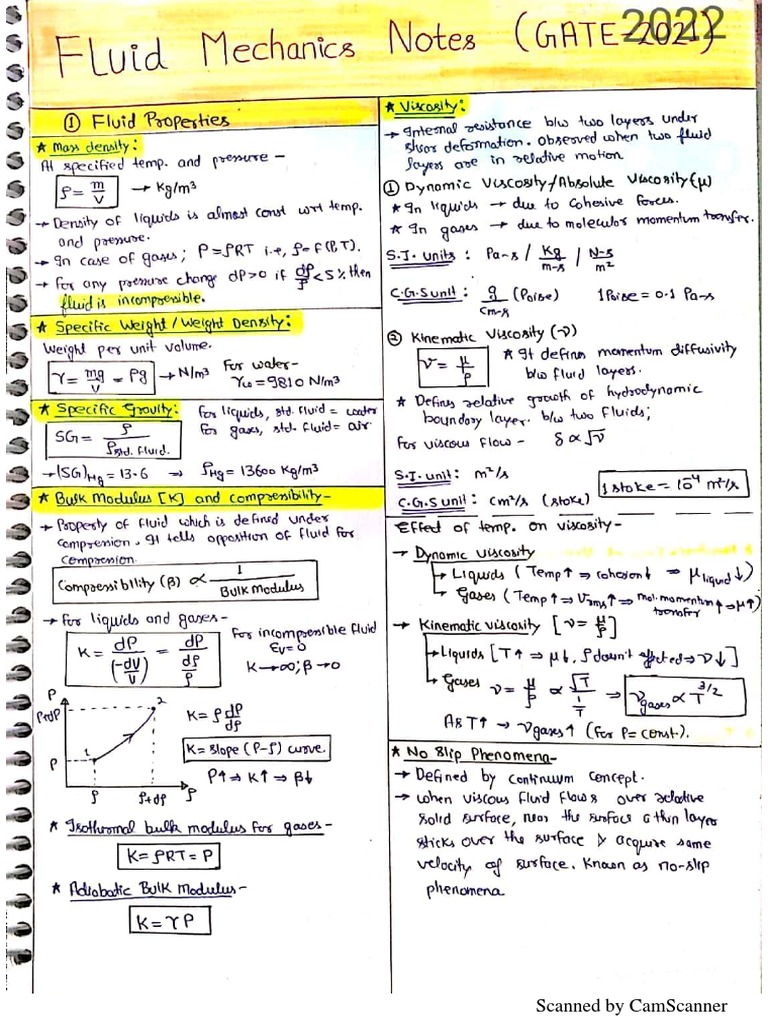 Fluid Mechanics Notes (GATE-2021)
2022
① Fluid Properties
★ Mass density:
At specified temp. and pressure -
ρ = m/V → Kg/m³
→ Density of liquids is almost const wrt temp.
and pressure.
→ In case of gases; P = ρRT i.e, ρ = f(P,T).
→ For any pressure change dP>0 if dρ/ρ < 5% then
fluid is incompressible.
★ Specific Weight / Weight Density:
Weight per unit volume.
γ = mg/V = ρg → N/m³
For water-
γω = 9810 N/m³
★ Specific Gravity:
For liquids, std. fluid = water
For gases, std. fluid = air
SG = ρ/ρstd. fluid.
→ (SG)Hg = 13.6 ⇒ ρHg = 13600 Kg/m³
★ Bulk Modulus [K] and compressibility-
→ Property of fluid which is defined under
compression. It tells opposition of fluid for
compression.
Compressibility (β) ∝ 1/Bulk Modulus
→ For liquids and gases-
K = dP/(-dV/V) = dP/(dρ/ρ)
For incompressible fluid
εv = 0
K → ∞; β → 0
P
P+dP
P
1
2
ρ
ρ+dρ
ρ
K = ρ dP/dρ
K = slope (P-ρ) curve.
P↑ ⇒ K↑ ⇒ β↓
★ Isothermal bulk modulus for gases-
K = ρRT = P
★ Adiabatic Bulk Modulus-
K = γP
★ Viscosity:
→ Internal resistance b/w two layers under
shear deformation. Observed when two fluid
layers are in relative motion
① Dynamic Viscosity/Absolute Viscosity (μ)
★ In liquids → due to Cohesive forces.
★ In gases → due to molecular momentum transfer.
S.I. units : Pa-s / Kg/m-s / N-s/m²
C.G.S unit : g/cm-s (Poise) 1 Poise = 0.1 Pa-s
② Kinematic Viscosity (ν)
ν = μ/ρ
★ It defines momentum diffusivity
b/w fluid layers.
★ Defines relative growth of hydrodynamic
boundary layer. b/w two fluids;
For viscous flow - δ ∝ √ν
S.I. unit: m²/s
C.G.S unit: cm²/s (stoke)
1 stoke = 10⁻⁴ m²/s
Effect of temp. on viscosity-
→ Dynamic viscosity
→ Liquids (Temp↑ ⇒ cohesion↓ ⇒ μliquid↓)
→ Gases (Temp↑ ⇒ Vrms↑ ⇒ mol. momentum transfer↑ ⇒ μ↑)
→ Kinematic viscosity [ν = μ/ρ]
→ Liquids [T↑ ⇒ μ↓, ρ doesn't affected ⇒ ν↓]
→ Gases ν = μ/ρ ∝ √T/(1/T) ⇒ νgases ∝ T^3/2
As T↑ → νgases↑ (for P = const.).
★ No Slip Phenomena-
→ Defined by continuum concept.
→ when viscous fluid flows over relative
solid surface, near the surface a thin layer
sticks over the surface & acquire same
velocity of surface. Known as no-slip
phenomena
Scanned by CamScanner